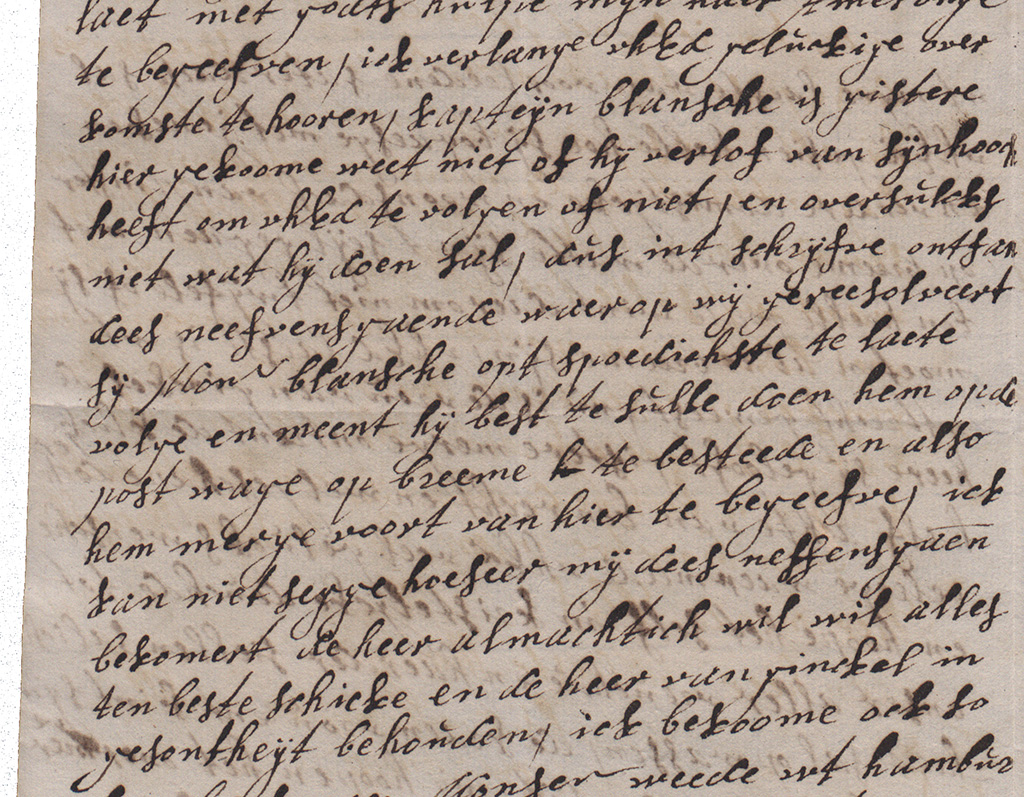 laet met godts hulpe mijn naer Ameronge
te begeefven, ick verlange uhEd geluckige over
komste te hooren, kapteijn blansche is gistere
hier gekoome weet niet of hij verlof van sijnhooch
heeft om uhEd te volgen of niet, en oversulcks
niet wat hij doen sal, dus int schrijfve ontfan
dees neefvensgaende waer op wij gereesolveert
sij Monr blansche opt spoedichste te laete
volge en meent hij best te sulle doen hem opde
post wage op breeme te besteede en also
hem merge voort van hier te begeefve, ick
kan niet segge hoeseer mij dees neffensgaen
bekomert de heer almachtich wil wil alles
ten beste schicke en de heer van ginckel in
gesontheijt behouden, ick bekoome ock so
weede ut hambur